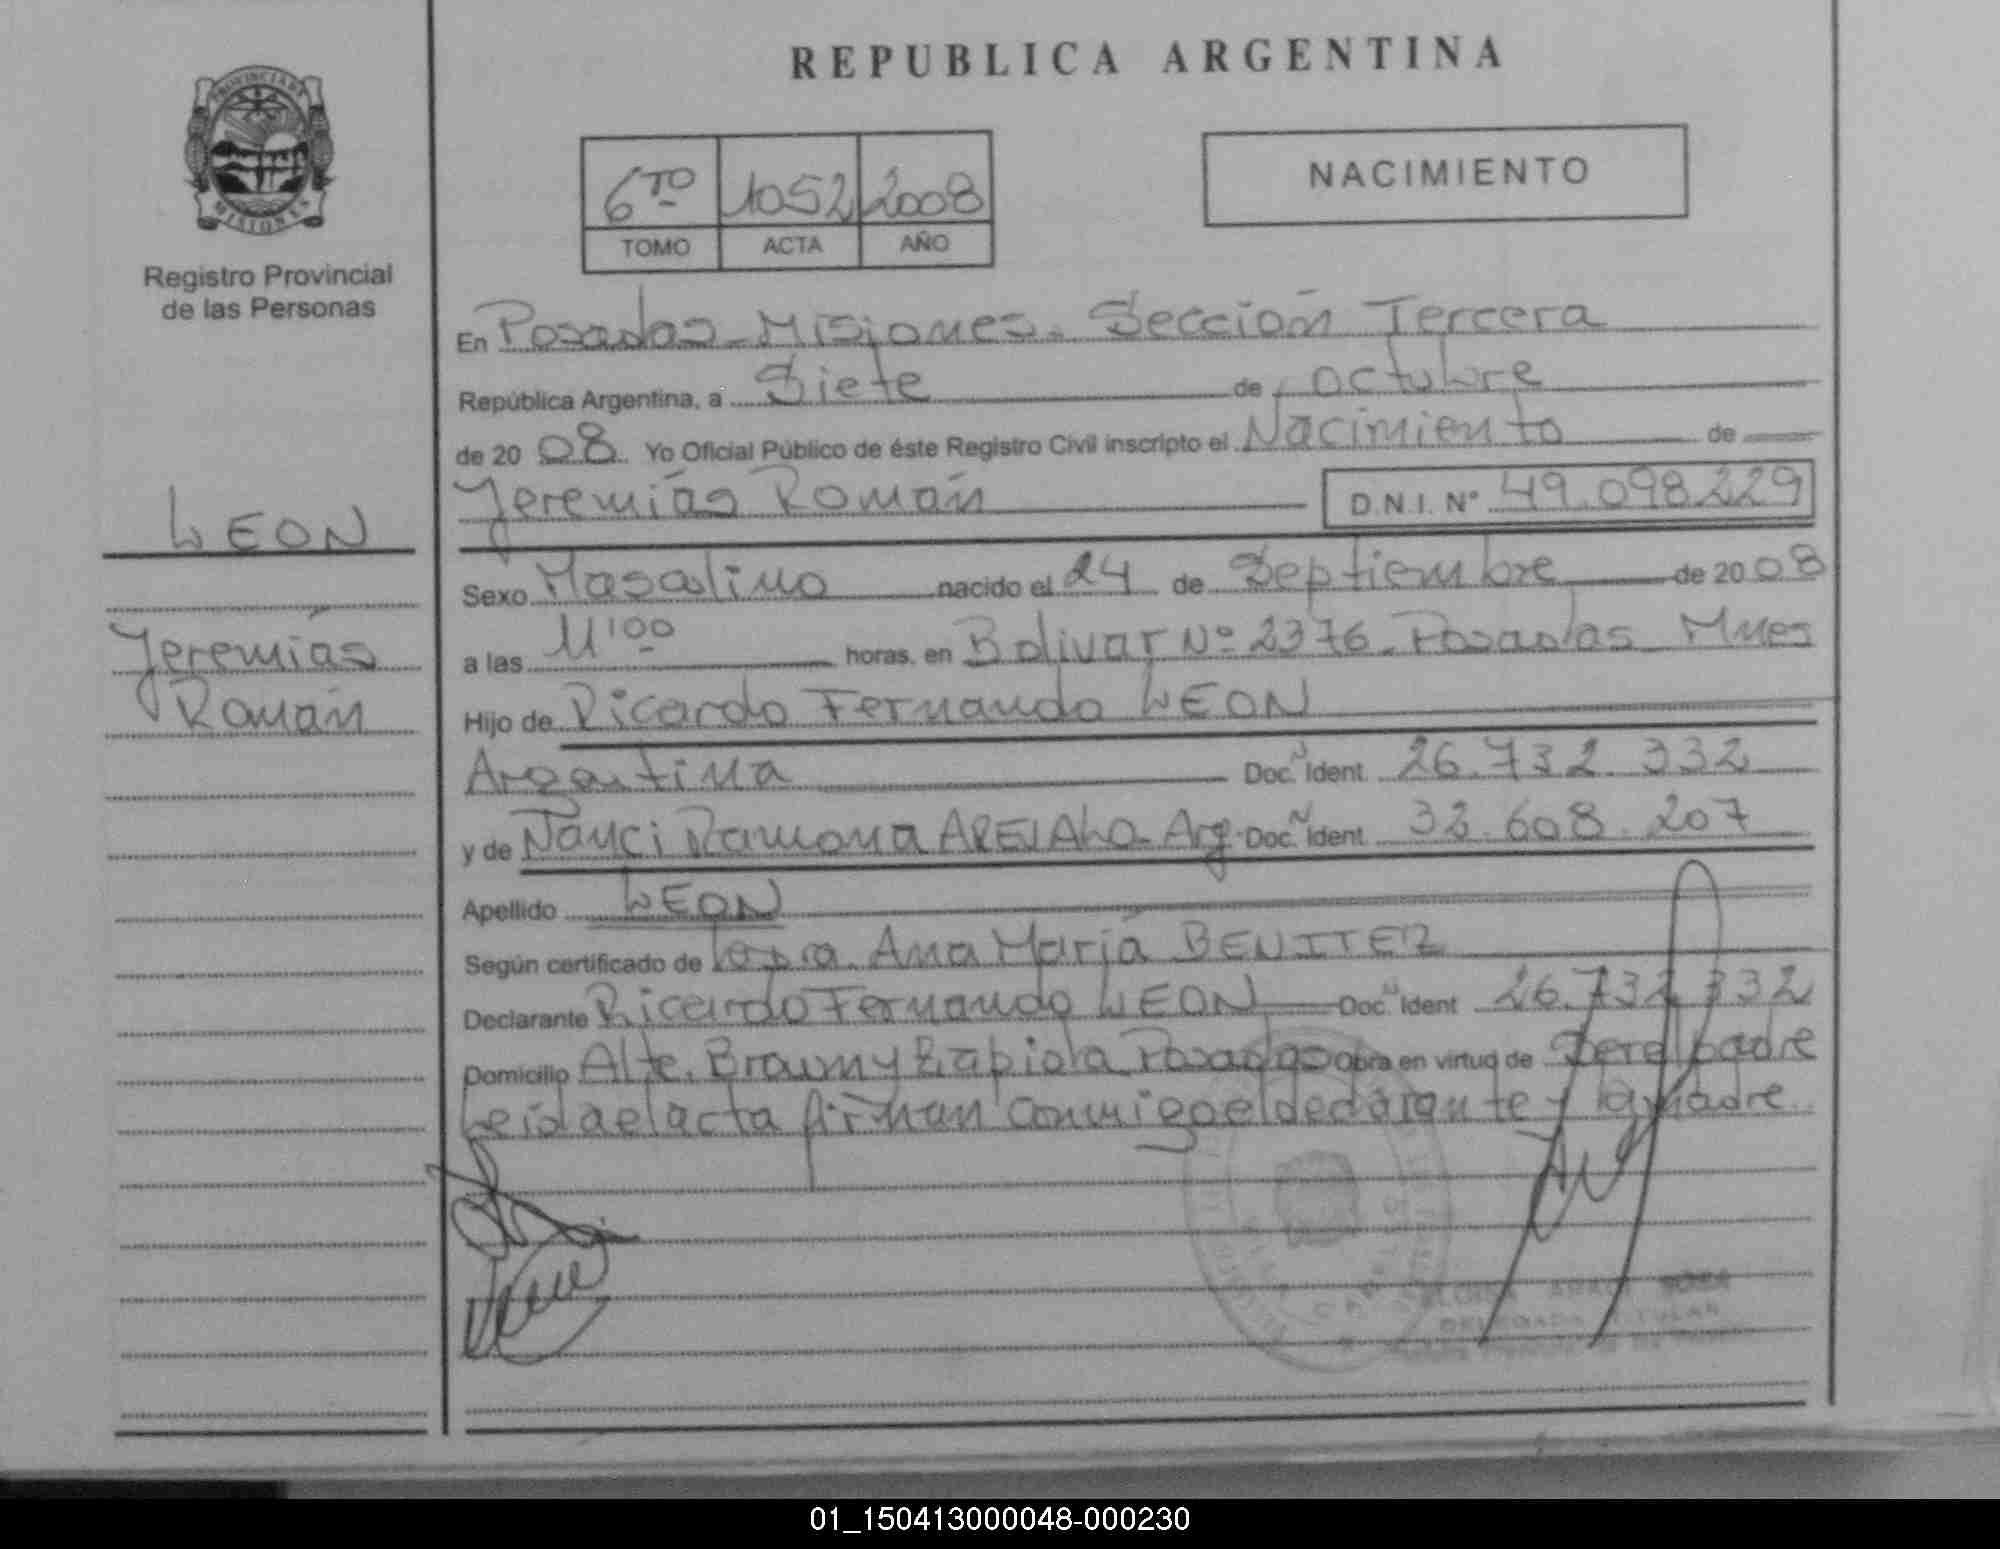 REPUBLICA ARGENTINA
PROVINCIA DE
MISIONES
Registro Provincial
de las Personas
6TO 1052 2008
TOMO ACTA AÑO
NACIMIENTO
En Posadas - Misiones. Sección Tercera
República Argentina, a Siete de octubre
de 2008 Yo Oficial Público de éste Registro Civil inscripto el Nacimiento de
Jeremías Román D.N.I. Nº 49.098.229
LEON
Jeremías
Román
Sexo Masculino nacido el 24 de Septiembre de 2008
a las 11'00 horas, en Bolivar Nº 2376. Posadas Mnes
Hijo de Ricardo Fernando LEON
Argentina Doc. Ident. 26.732.332
y de Nanci Ramona AREVALO - Arg. Doc. Ident. 33.608.207
Apellido LEON
Según certificado de Ana María BENITEZ
Declarante Ricardo Fernando LEON Doc. Ident 26.732.332
Domicilio Alte. Brown y Zapiola Posadas Obra en virtud de Ser el padre
Leida el acta firman conmigo el declarante y la madre
DELEGADA TITULAR
01_150413000048-000230